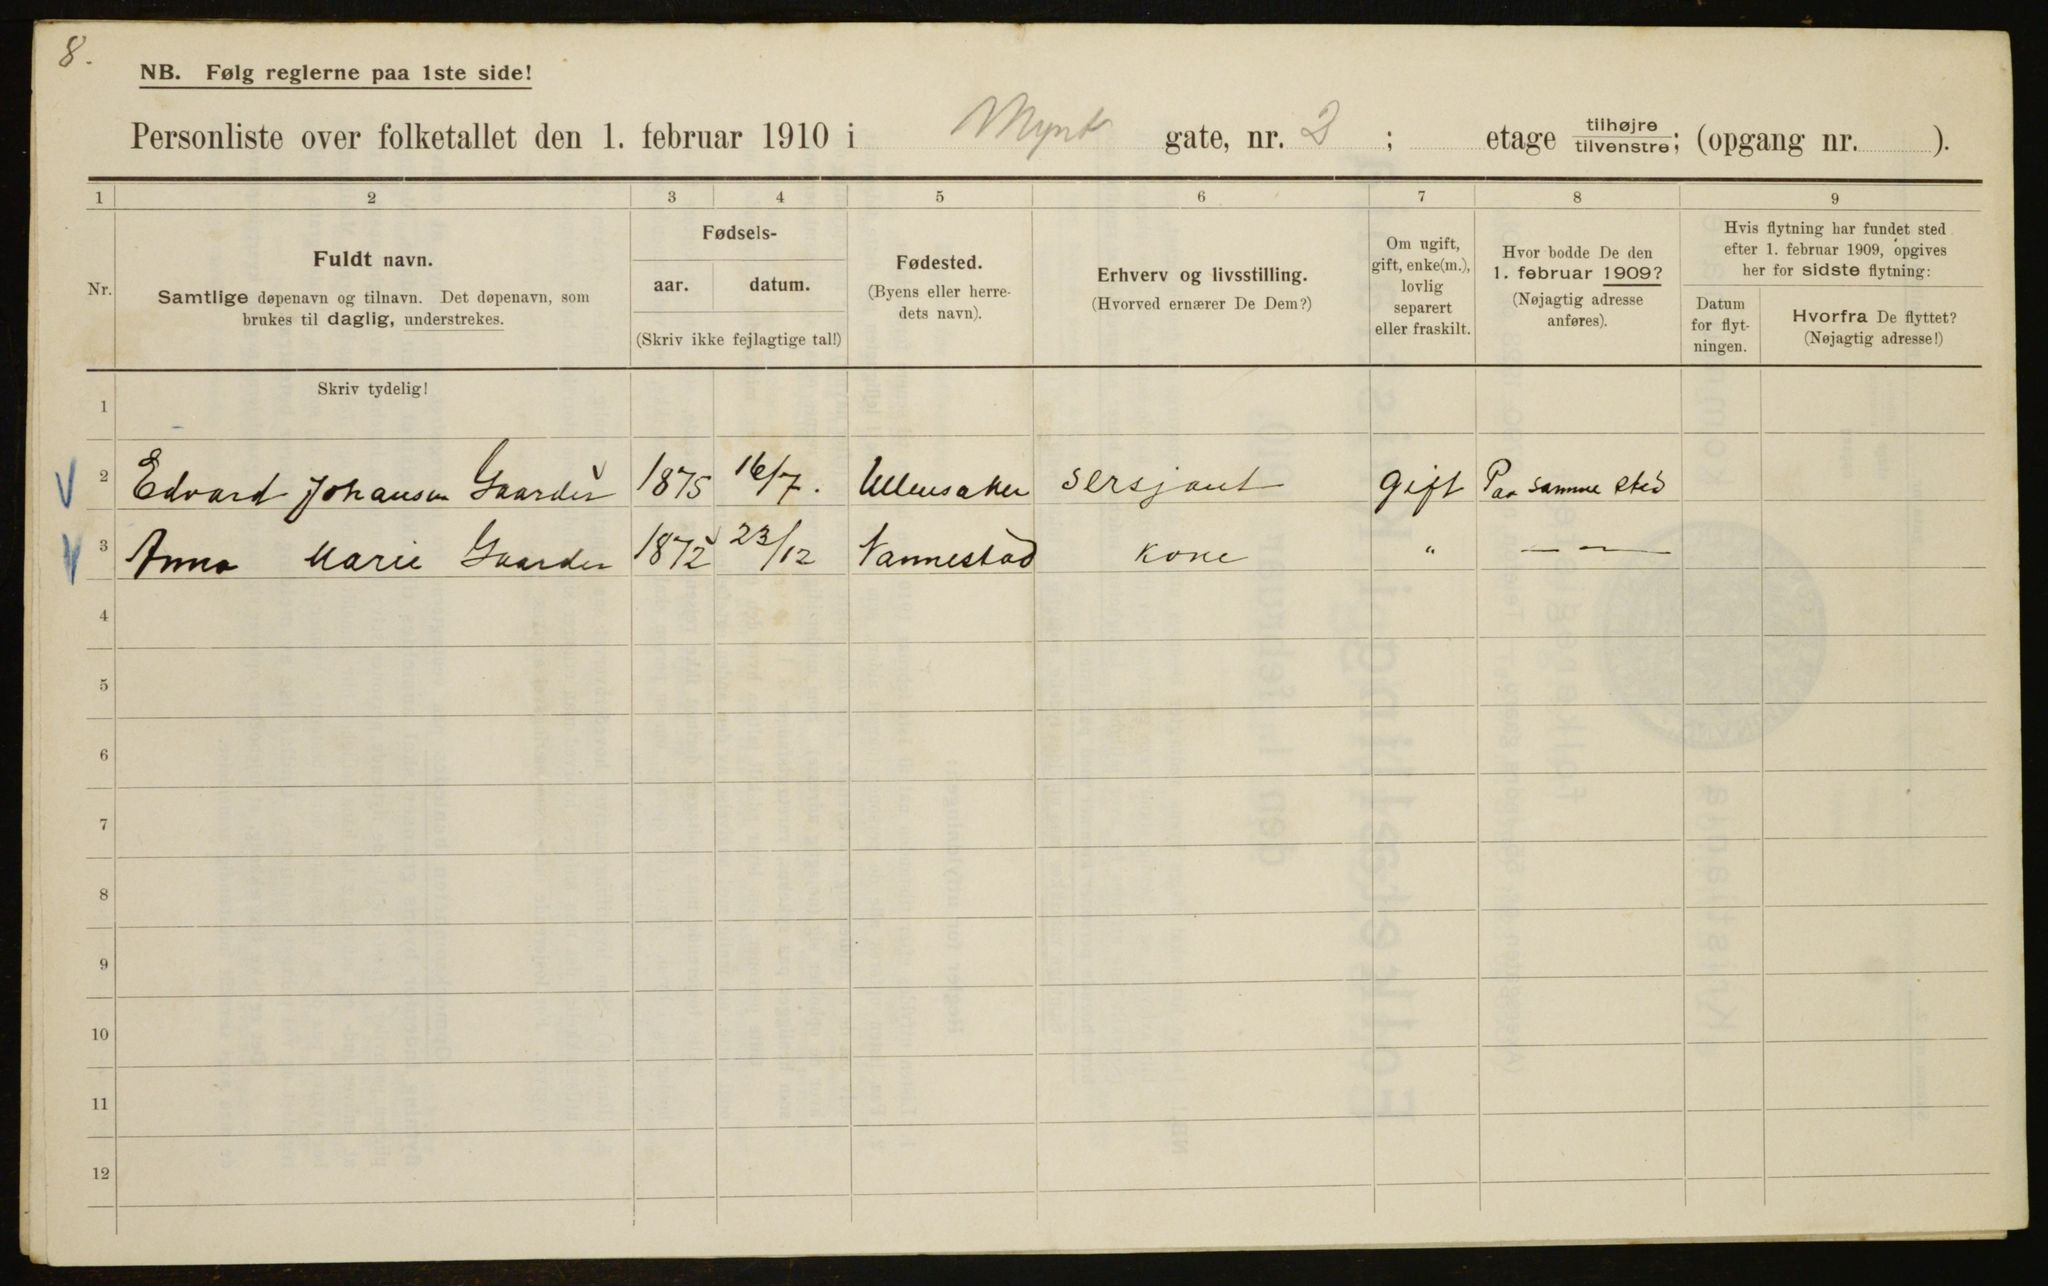 8.
NB. Følg reglerne paa 1ste side!
Personliste over folketallet den 1. februar 1910 i Mynt gate, nr. 2 ; etage tilhøjre tilvenstre; (opgang nr. ).
1 2 3 4 5 6 7 8 9
Nr.
Fuldt navn.
Samtlige døpenavn og tilnavn. Det døpenavn, som
brukes til daglig, understrekes.
Fødsels-
aar. datum.
(Skriv ikke fejlagtige tal!)
Fødested.
(Byens eller herre-
dets navn).
Erhverv og livsstilling.
(Hvorved ernærer De Dem?)
Om ugift,
gift, enke(m.),
lovlig
separert
eller fraskilt.
Hvor bodde De den
1. februar 1909?
(Nøjagtig adresse
anføres).
Hvis flytning har fundet sted
efter 1. februar 1909, opgives
her for sidste flytning:
Datum
for flyt-
ningen.
Hvorfra De flyttet?
(Nøjagtig adresse!)
Skriv tydelig!
1
2 Edvard Johansen Gaarder 1875 16/7. Ullensaker sersjant gift Paa samme sted
3 Anna Marie Gaarder 1872 23/12 Nannestad kone " — —
4
5
6
7
8
9
10
11
12